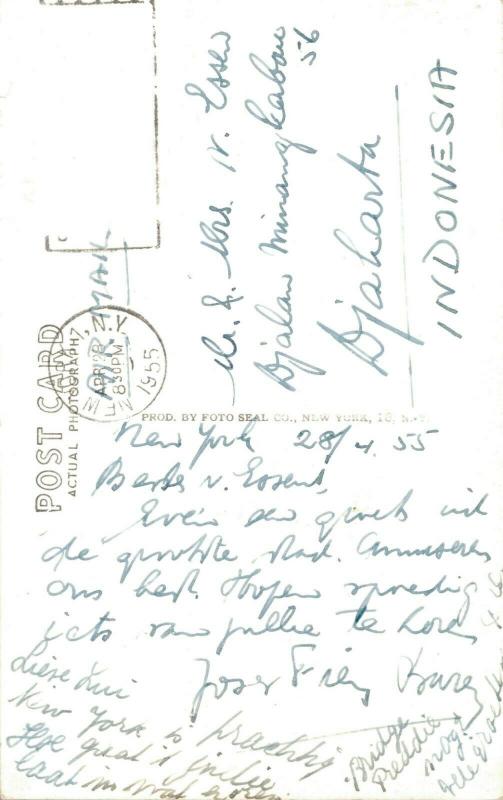 POST CARD
ACTUAL PHOTOGRAPH
AIR MAIL
N.Y.
APR 28
8 30 PM
1955
PROD. BY FOTO SEAL CO., NEW YORK, 10, N.Y.
Mr. & Mrs. v. Essen
Djalan Minangkabau
56
Djakarta
INDONESIA
New York 28/4.55
Beste v. Essens,
Even een groet uit
de grootste stad. Amuseren
ons best. Hopen spoedig
iets van jullie te horen
Joser
Lieve
New York is prachtig
Hoe gaat 't jullie
laat m wat horen
Bridge
nog